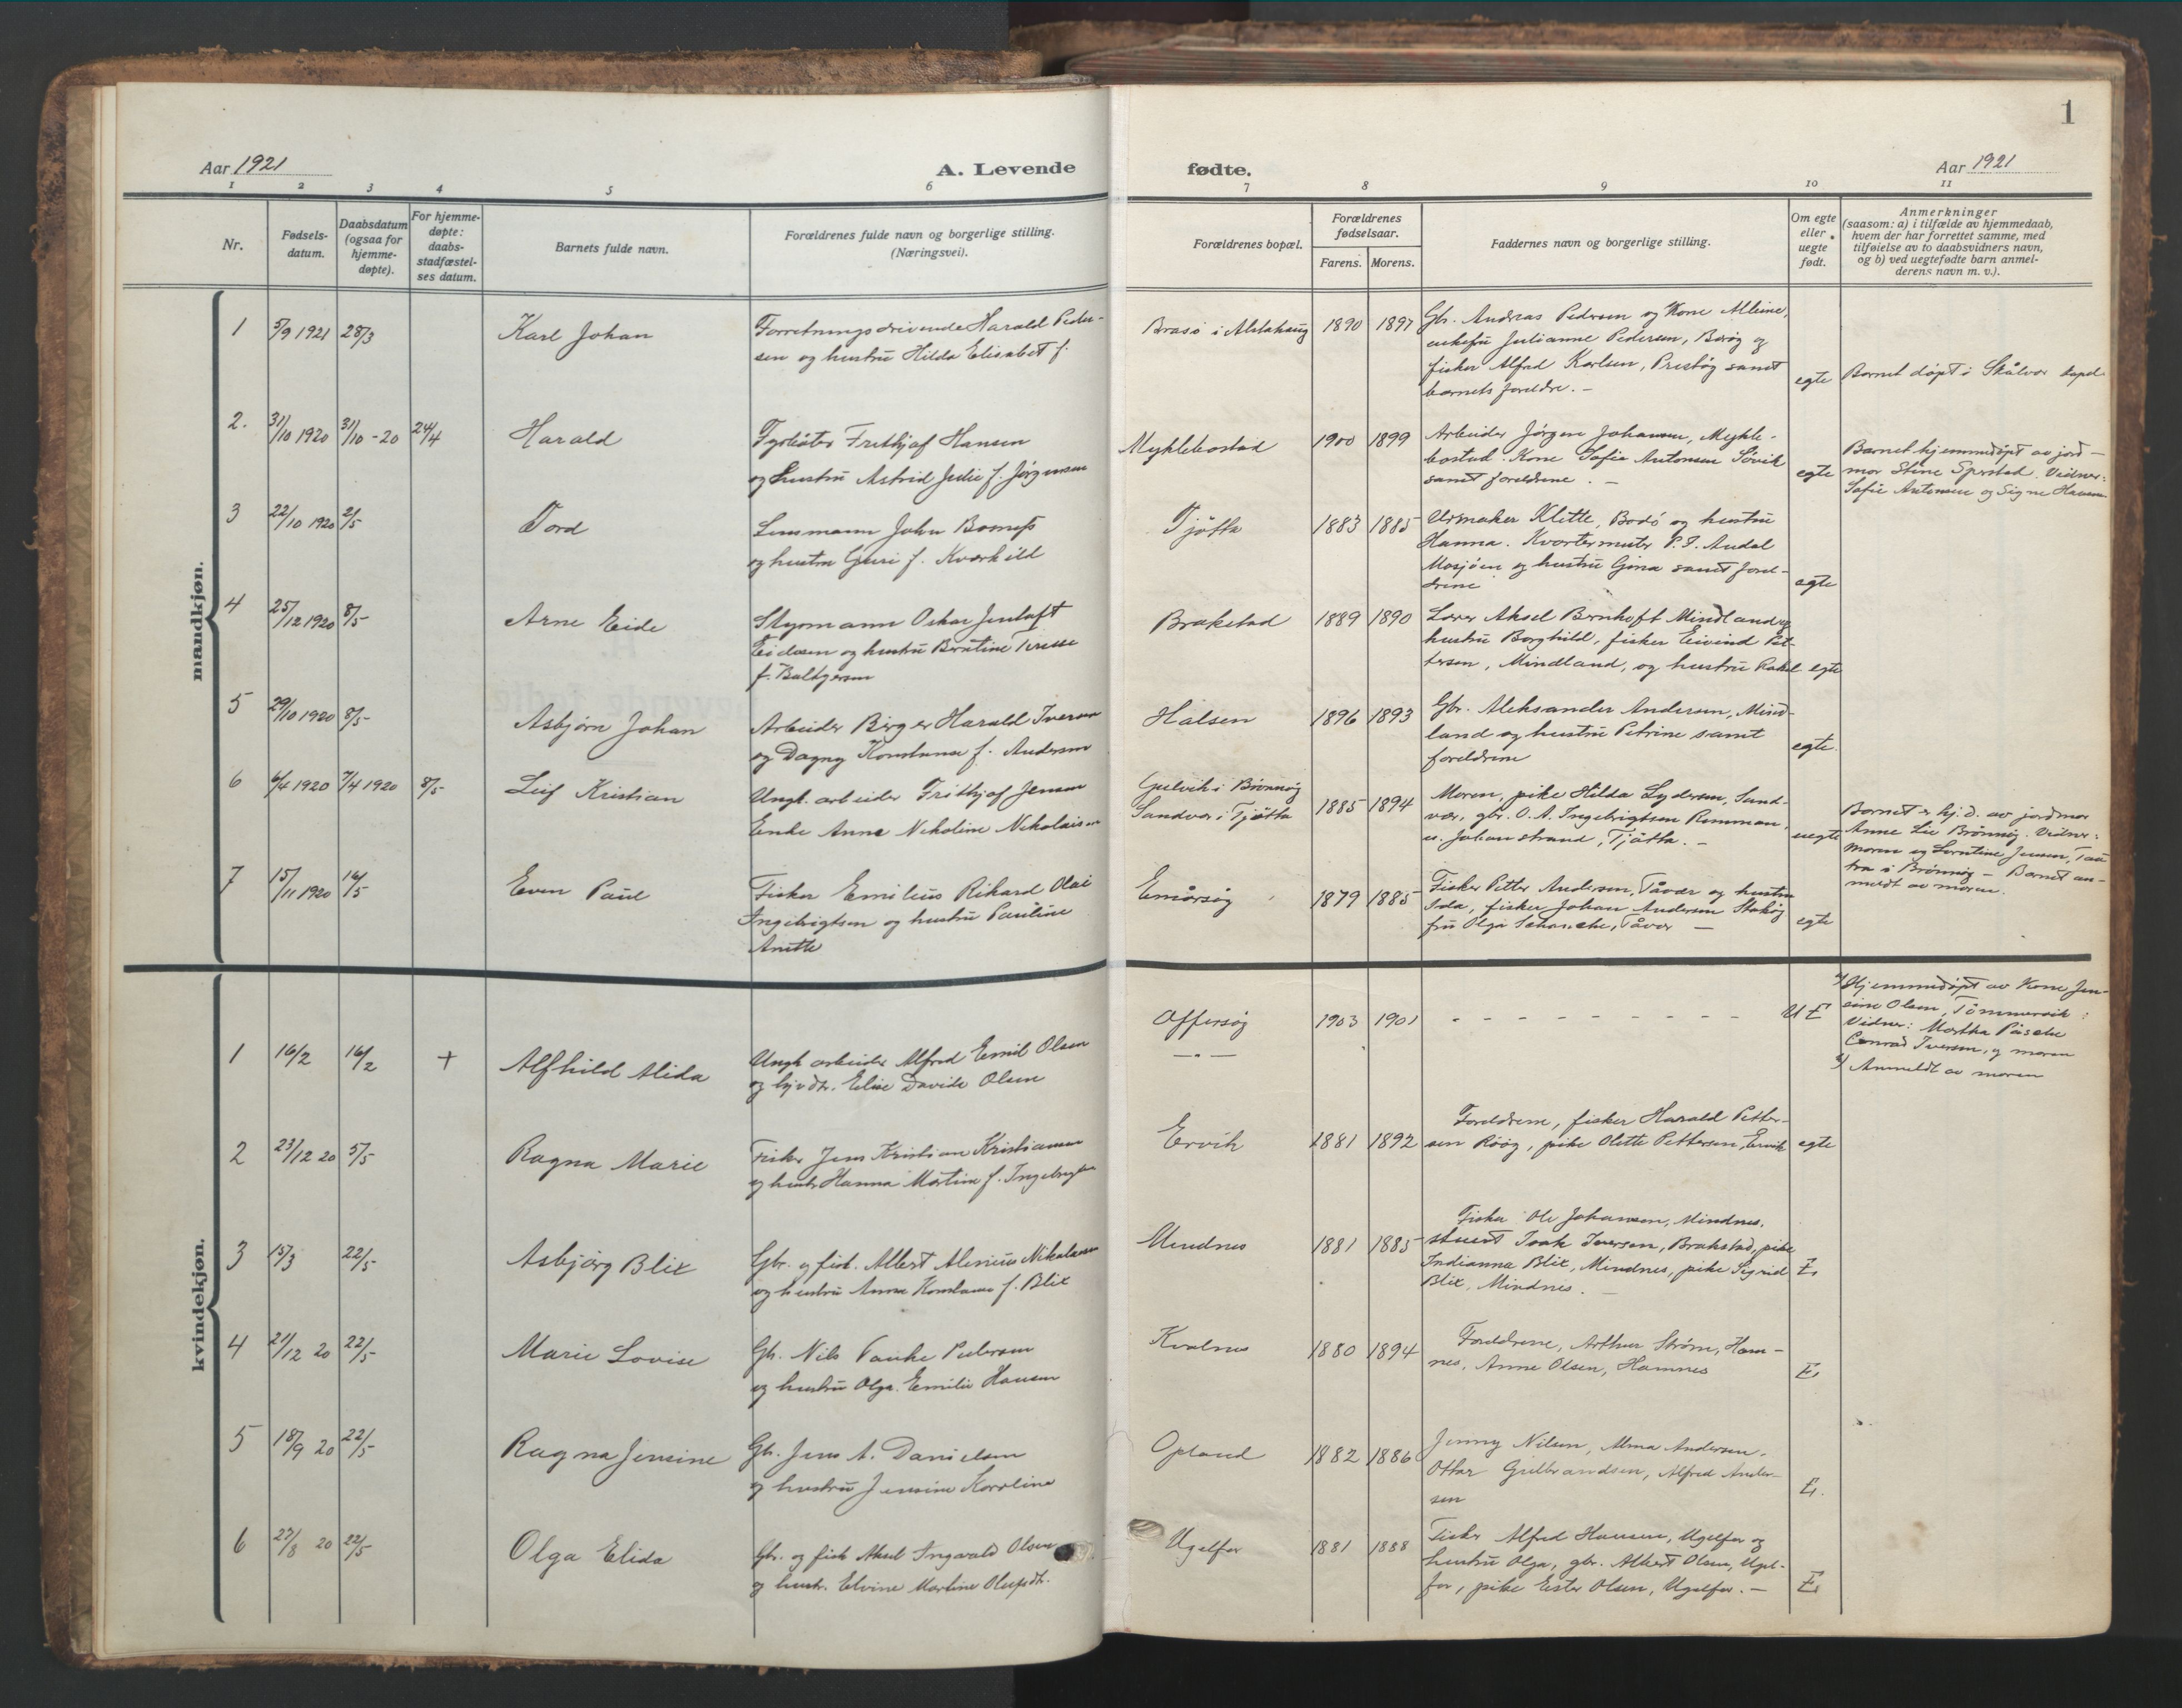 Aar 1921
A. Levende
fødte.
Aar 1921
1
1 2 3 4 5 6 7 8 9 10 11
Nr.
Fødsels-
datum.
Daabsdatum
(ogsaa for
hjemme-
døpte).
For hjemme-
døpte:
daabs-
stadfæstel-
ses datum.
Barnets fulde navn.
Forældrenes fulde navn og borgerlige stilling.
(Næringsvei).
Forældrenes bopæl.
Forældrenes
fødselsaar.
Farens. Morens.
Faddernes navn og borgerlige stilling.
Om egte
eller
uegte
født.
Anmerkninger
(saasom: a) i tilfælde av hjemmedaab,
hvem der har forrettet samme, med
tilføielse av to daabsvidners navn,
og b) ved uegtefødte barn anmel-
derens navn m. v.).
mandkjøn.
1 5/9 1921 28/3 Karl Johan
Forretningsdrivende Harald Peder-
sen og hustru Hilda Elisabet f.
Brasö i Alstahaug 1890 1897
Gbr. Andreas Pedersen og Kone Alleine,
enkefru Julianne Pedersen, Berög og
fisker Alfred Karlsen, Prestög samt
barnets foreldre. -
egte
Barnet döpt i Skålvær kapel
2. 31/10 1920 31/10 - 20 24/4 Harald
Fyrbøter Frithjof Hansen
og hustru Astrid Julie f. Jörgensen
Myklebostad 1900 1899
Arbeider Jörgen Johansen, Mykle-
bostad. Kone Sofie Antonsen Sövik
samt foreldrene. -
egte
Barnet hjemmedöpt av jord-
mor Stine Vidner:
Sofie Antonsen og Signe Hansen
3 22/10 1920 2/5 Tord
Lensmann John
og hustru Guri f. Kværkild
Tjötta 1883 1885
Urmaker Klette, Bodö og hustru
Hanna. Kvartermester P. J. Andal
Mosjöen og hustru Gina samt forel-
drene
egte
4 25/12 1920 8/5 Arne Eide
Styrmann Oskar Jentoft
Eidesen og hustru Berntine Terese
f. Baltzersen
Brækstad 1889 1890
Lærer Aksel Bernhoft Mindland og
hustru Borghild, fisker Eivind Pet-
tersen, Mindland, og hustru Rakel
egte
5 29/10 1920 8/5 Asbjörn Johan
Arbeider Birger Harald Iversen
og Dagny Konstanse f. Andersen
Halsen 1896 1893
Gbr. Aleksander Andersen, Mind-
land og hustru Petrine samt
foreldrene
egte.
6 6/4 1920 7/4 1920 8/5 Leif Kristian
Ungk. arbeider Frithjof Jensen
Enke Anna Nekoline Nikolaisen
i Brönnög
Sandvær i Tjötta 1885 1894
Moren, pike Hilda Lydersen, Sand-
vær, gbr. O. A. Ingebrigtsen Remman,
u. Johan strand, Tjötta. -
uegte
Barnet er hj.d. av jordmor
Anne Lie Brönnög. Vidner:
moren og Jensen,
i Brönnög - Barnet an-
meldt av moren.
7 15/11 1920 16/5 Even Paul
Fisker Emilius Rikard Olai
Ingebrigtsen og hustru Pauline
Anette
Emårsög 1879 1885
Fisker Petter Andersen, Tåvær og hustru
Ida, fisker Johan Andersen
fru Olga Schanche, Tåvær -
egte
kvindekjøn.
1 16/2 16/2 + Alfhild Alida
Ungk. arbeider Alfred Emil Olsen
og hjv. dtr. Elise Davide Olsen
Offersög
- " -
1903 1901
- - - - - - - - - -
U E
a) Hjemmedöpt av Kone Jen-
sine Olsen, Tömmervik:
Vidner: Martha Påsche
Conrad Iversen, og moren
b) Anmeldt av moren
2 23/12 20 5/5 Ragna Marie
Fisker Jens Kristian Kristiansen
og hustr Hanna Martine f. Ingebrigtsen
Ervik 1881 1892
Foreldrene, fisker Harald Petter-
sen Röög, pike Olette Pettersen, Ervik
egte
3 15/3 22/5 Asbjörg Blix
Gbr. og fisk. Albert Alenius Nikolaisen
og hustru Anna Konstanse f. Blix
Mindnes 1881 1885
Fisker Ole Johansen, Mindnes,
stuert Isak Iversen, Brækstad, pike
Indianna Blix, Mindnes, pike Sigrid
Blix, Mindnes. -
E.
4 21/12 20 22/5 Marie Lovise
Gb. Nils Pedersen
og hustru Olga Emilie Hansen
Kvalnes 1880 1894
Foreldrene, Arthur Strøm, Ham-
nes, Anne Olsen, Hamnes
E.
5 18/9 20 22/5 Ragna Jensine
Gb. Jens A. Danielsen
og hustru Jensine Karoline
Opland 1882 1886
Jenny Nilsen, Alma Andersen,
Ottar Gulbrandsen, Alfred Ander-
sen
E.
6 27/8 20 22/5 Olga Elida
Gbr. og fisk Aksel Ingvald Olsen
og hustr. Elvine Martine Olufsdtr.
Ugelfær 1881 1888
Fisker Alfred Hansen, Ugelfær og
hustru Olga, gbr. Albert Olsen, Ugel-
fær, pike Ester Olsen, Ugelfær. -
E.